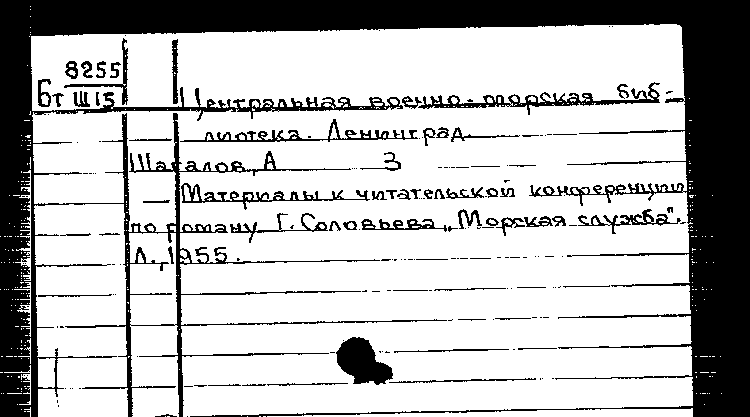 8255
Бт Ш15
Центральная военно-морская биб-
лиотека. Ленинград.
Шагалов, А З
— Материалы к читательской конференции
по роману Г. Соловьева "Морская служба".
Л., 1955.